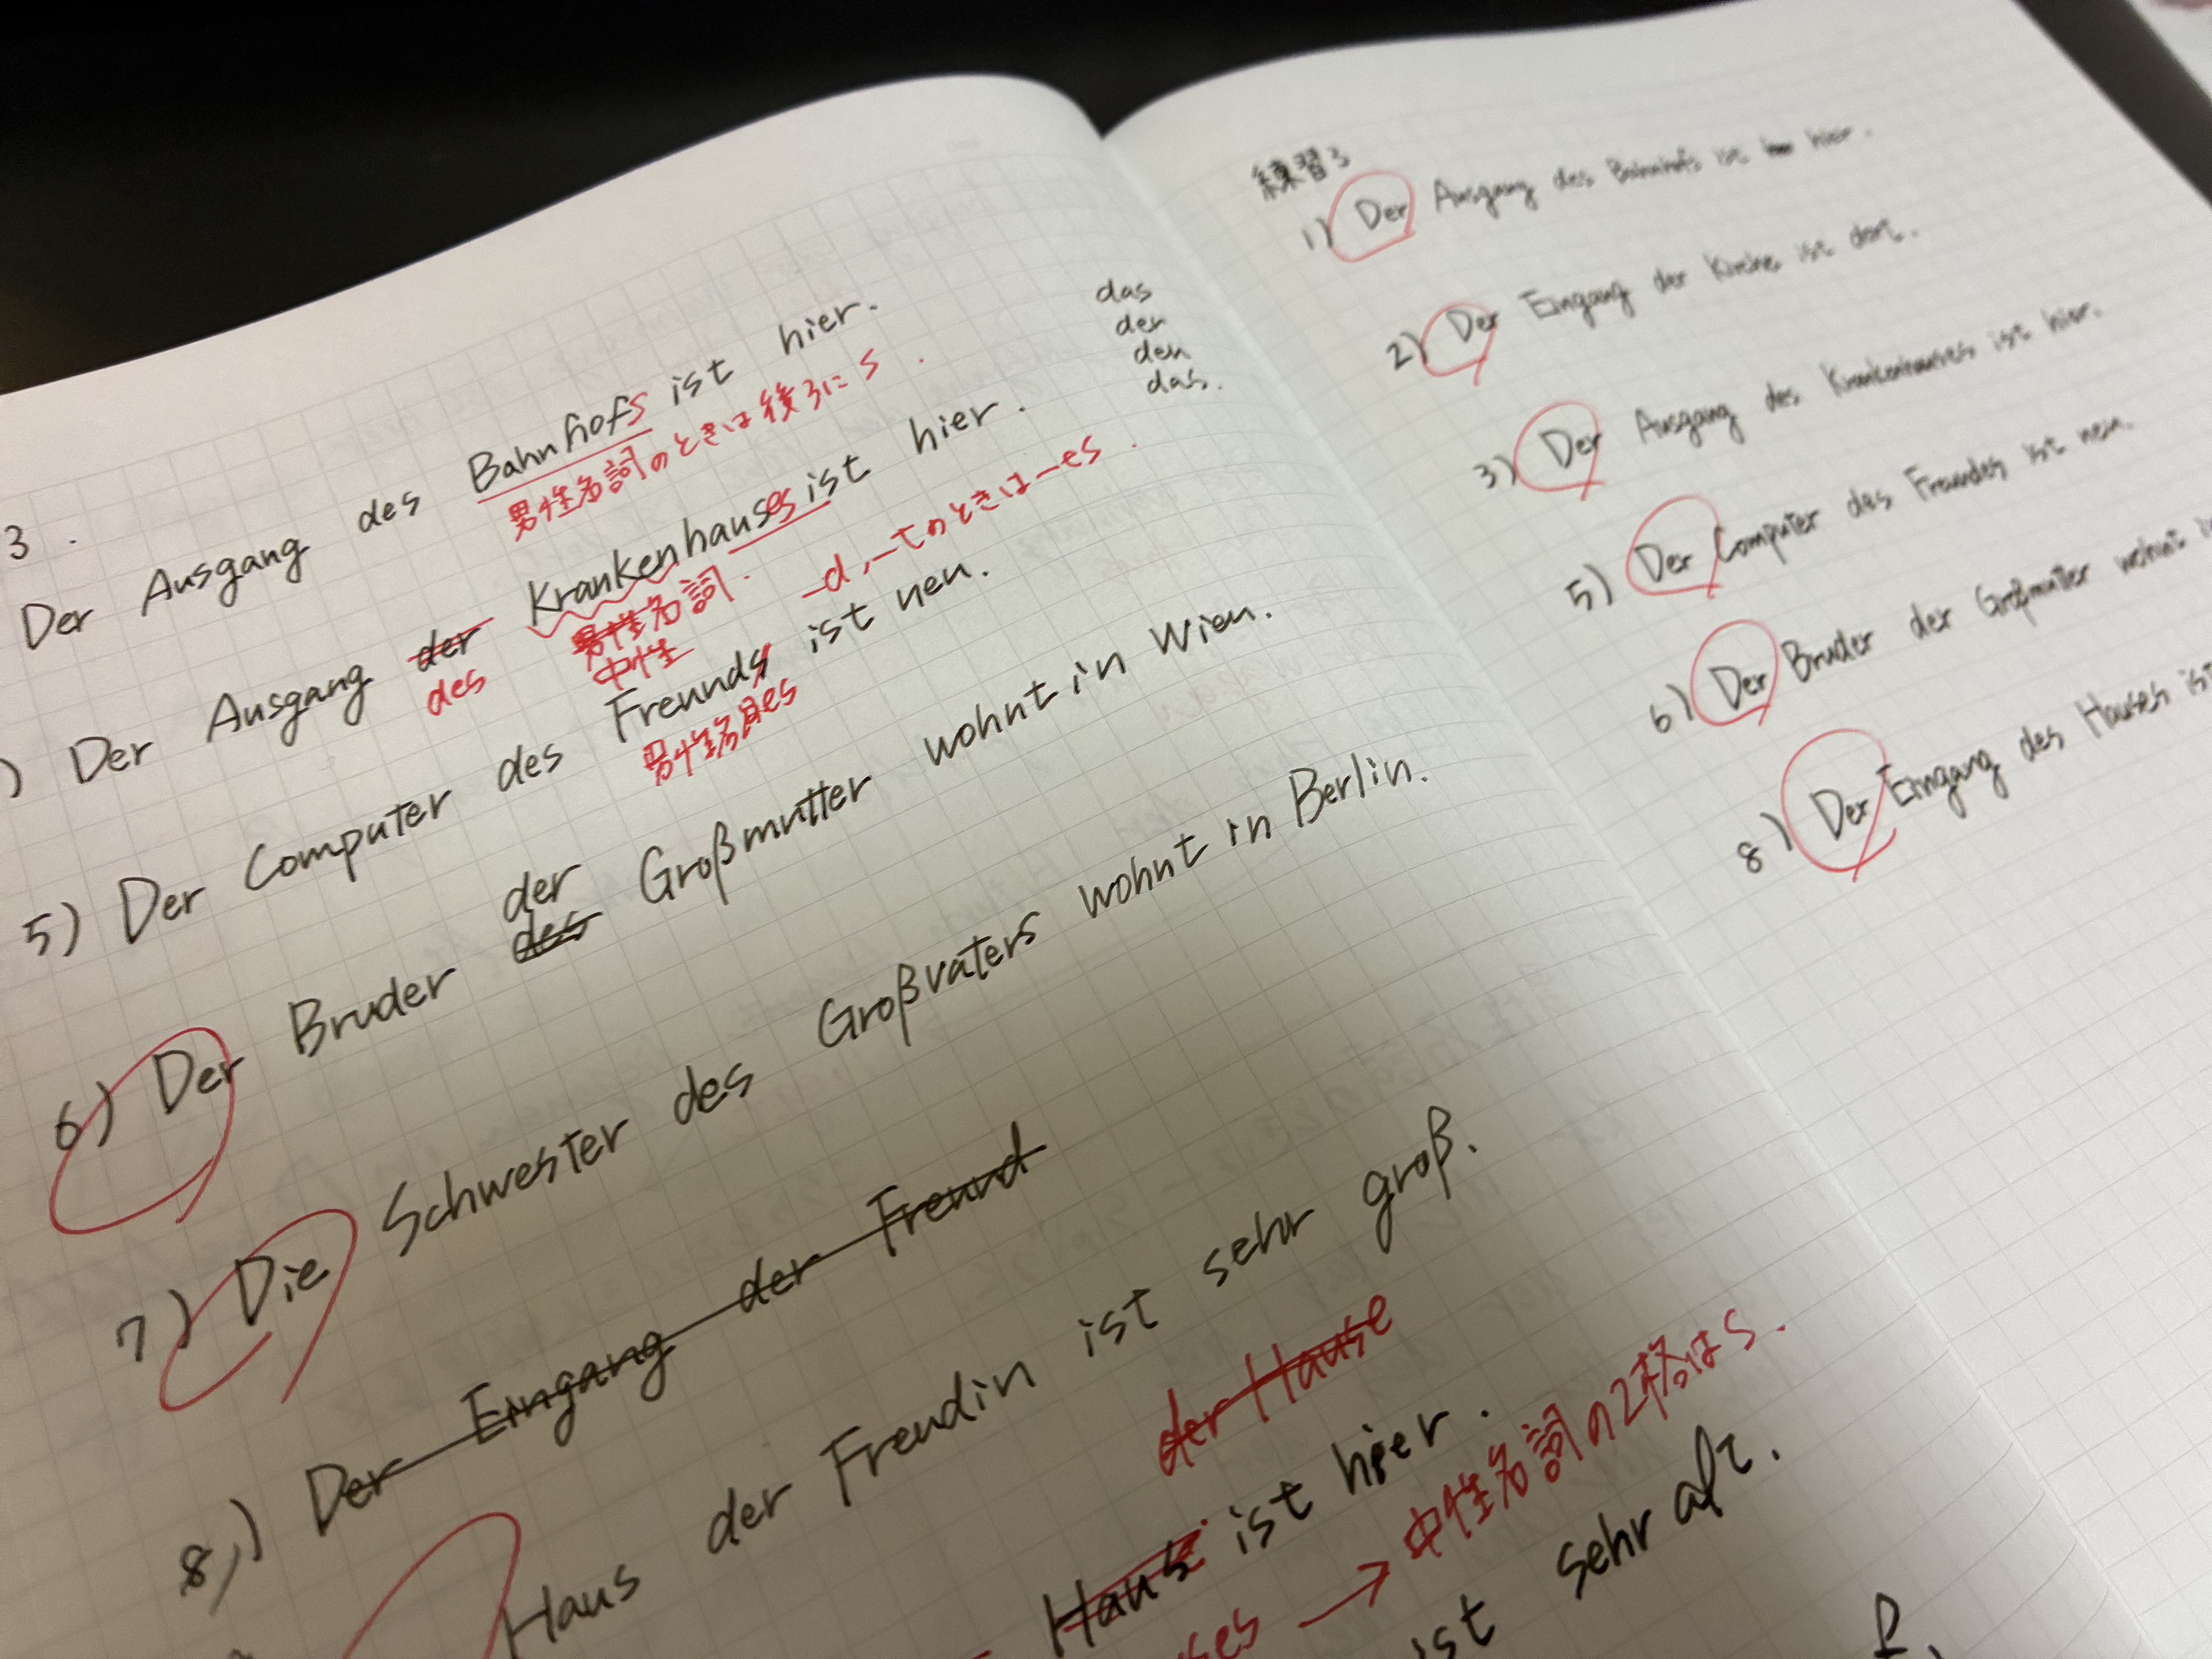 3.
Der Ausgang des Bahnhofs ist hier.
男性名詞のときは後ろにs.
) Der Ausgang der Krankenhauses ist hier.
des
男性名詞.
中性
-d, -tのときは-es.
5) Der Computer des Freunds ist neu.
男性名詞es
der
6) Der Bruder des Großmutter wohnt in Wien.
7) Die Schwester des Großvaters wohnt in Berlin.
8,) Der Eingang der Freund
Haus der Freudin ist sehr groß.
der Hause
Haus ist hier.
ses → 中性名詞の2格はs.
ist sehr alt.
das
der
den
das.
練習3
1) Der Ausgang des Bahnhofs ist hier.
2) Der Eingang der Kirche ist dort.
3) Der Ausgang des Krankenhauses ist hier.
5) Der Computer des Freundes ist neu.
6) Der Bruder der Großmutter wohnt
8) Der Eingang des Hauses ist